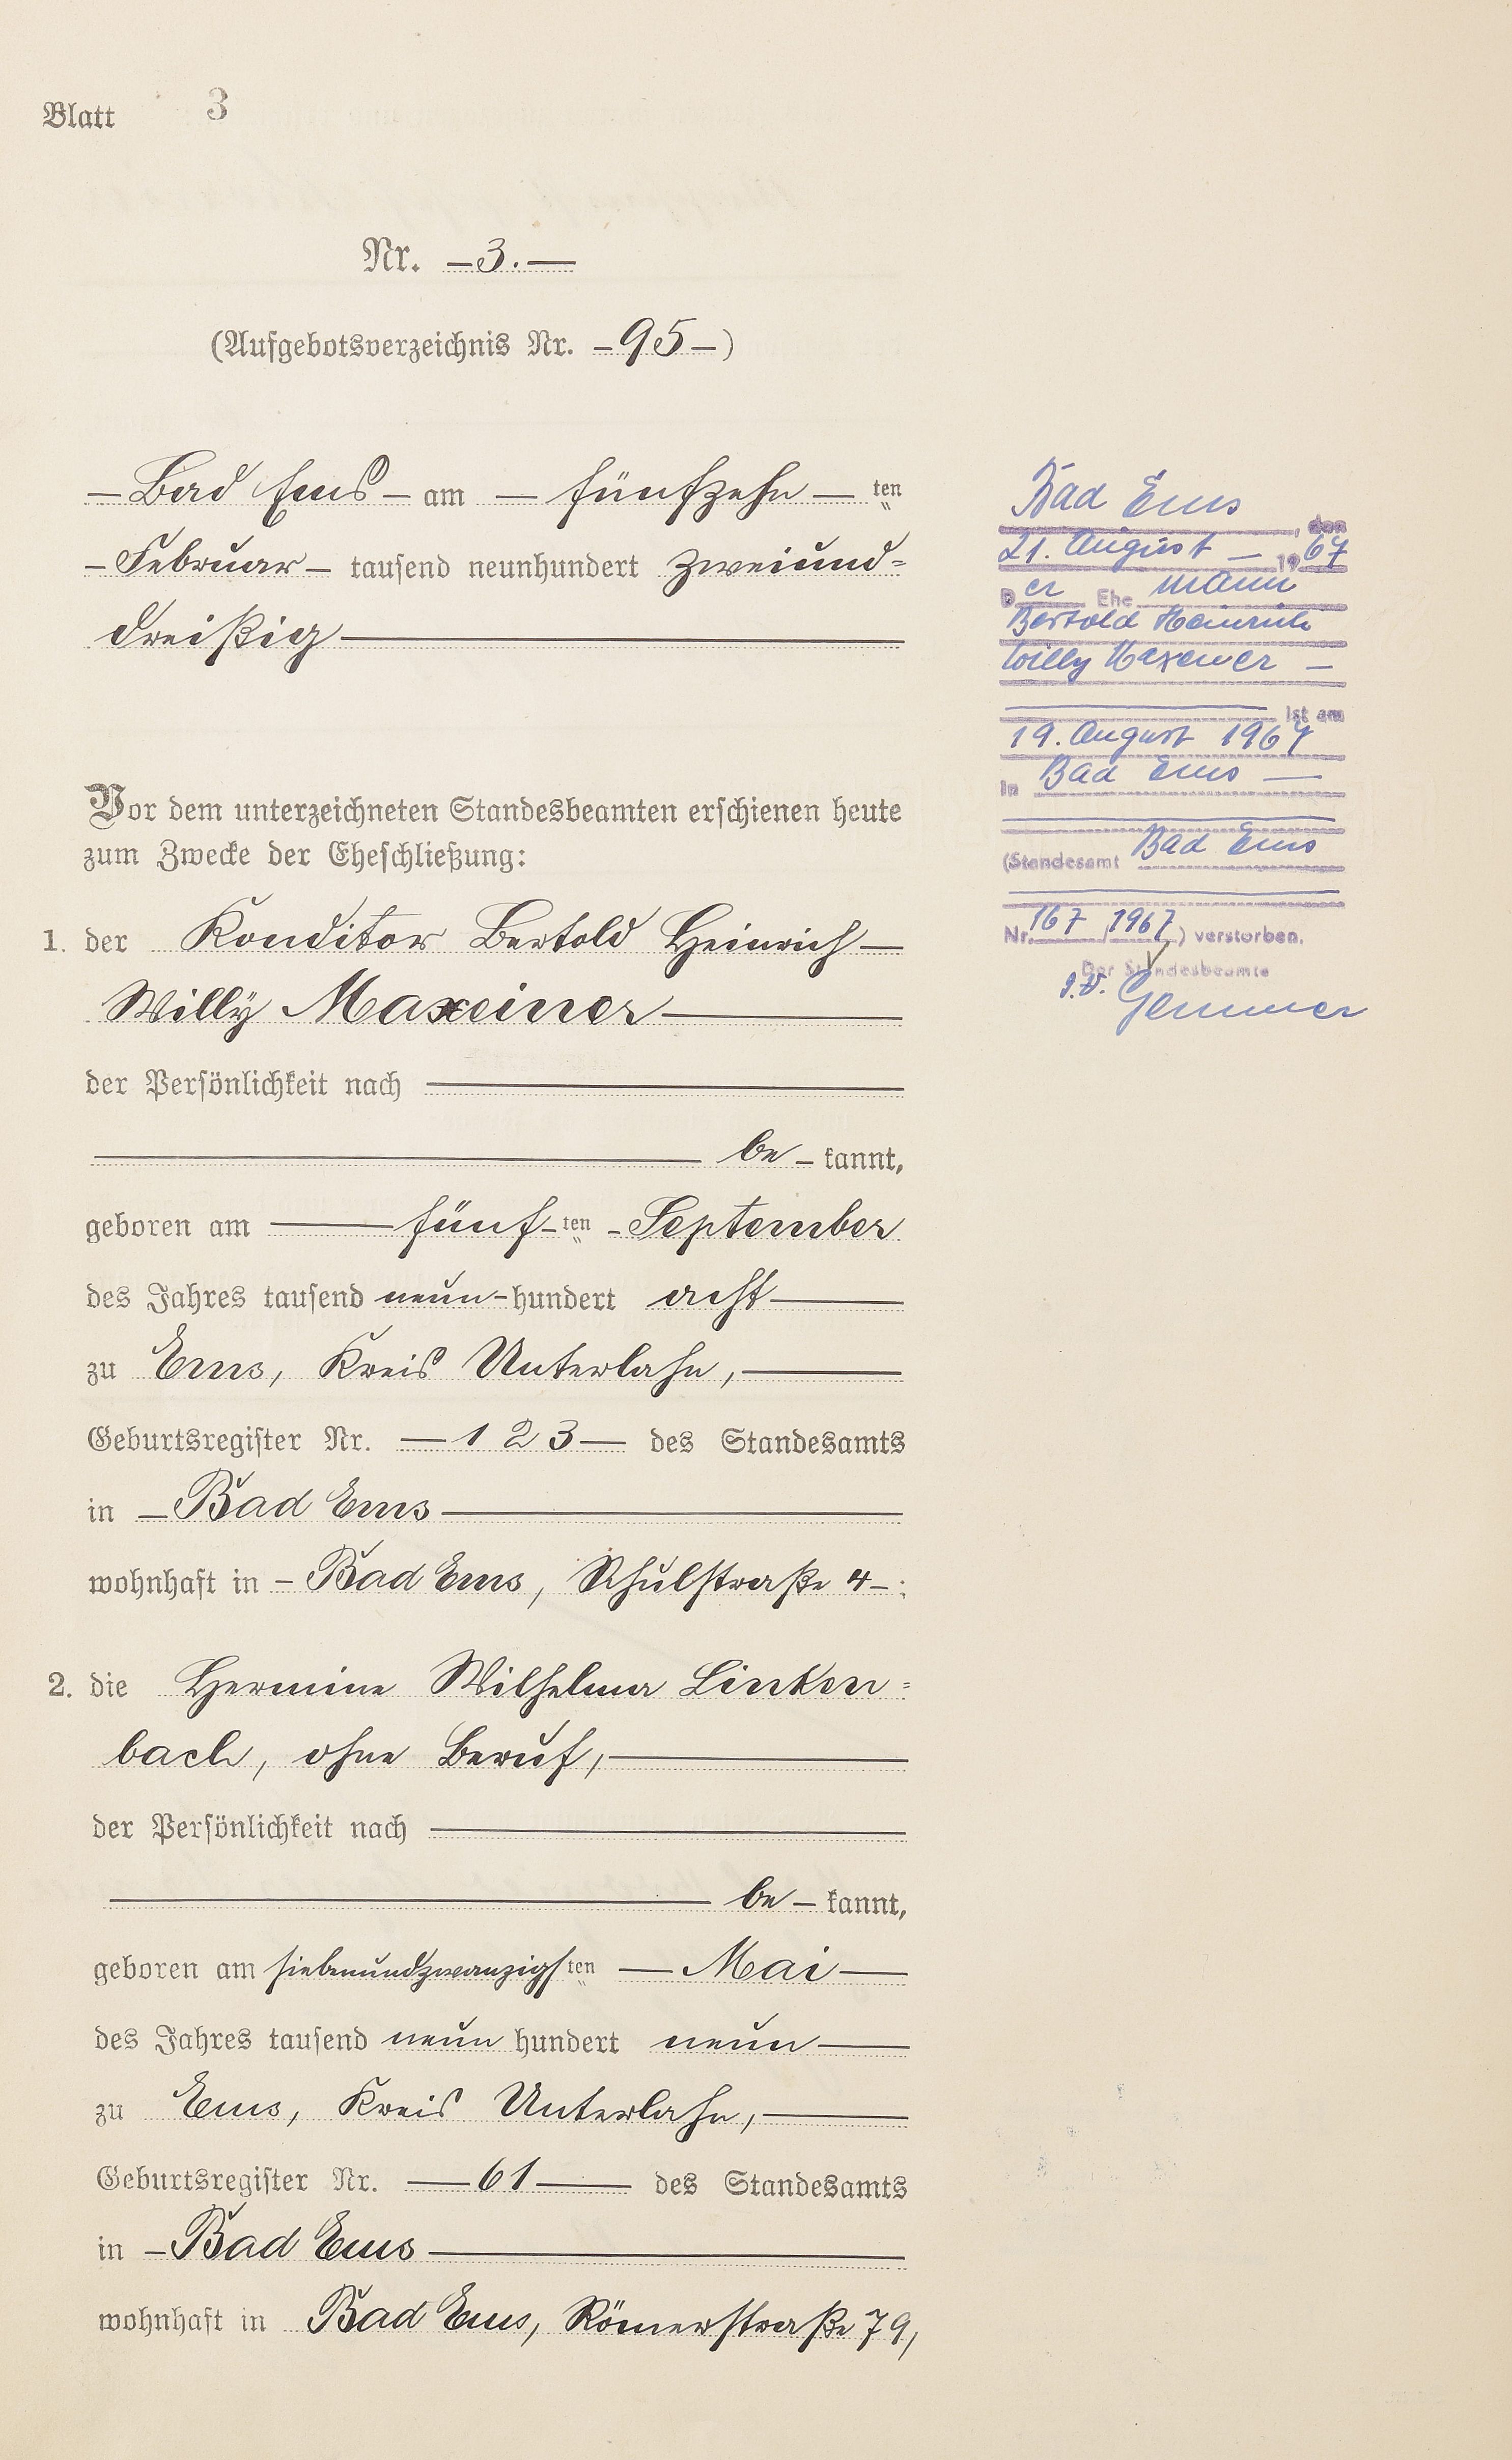 Blatt 3
Nr. – 3. —
(Aufgebotsverzeichnis Nr. – 95 – )
– Bad Ems – am – fünfzehn – ten
– Februar – tausend neunhundert zweiund=
dreißig —
Vor dem unterzeichneten Standesbeamten erschienen heute
zum Zwecke der Eheschließung:
1. der Konditor Bertold Heinrich —
Willy Maxeiner —
der Persönlichkeit nach —
— be – kannt,
geboren am — fünf – ten – September
des Jahres tausend neun – hundert acht —
zu Ems, Kreis Unterlahn, —
Geburtsregister Nr. — 123 — des Standesamts
in – Bad Ems —
wohnhaft in – Bad Ems, Schulstraße 4 – ;
2. die Hermine Wilhelma Linken=
bach, ohne Beruf, —
der Persönlichkeit nach —
— be – kannt,
geboren am siebenundzwanzigsten — Mai —
des Jahres tausend neun hundert neun —
zu Ems, Kreis Unterlahn, —
Geburtsregister Nr. — 61 — des Standesamts
in – Bad Ems —
wohnhaft in Bad Ems, Römerstraße 79,
Bad Ems, den
21. August – 1967
Der Ehemann
Bertold Heinrich
Willy Maxeiner –
— ist am
19. August 1967
in Bad Ems —
(Standesamt Bad Ems
Nr. 167 / 1967) verstorben.
Der Standesbeamte
I.V. Gemmer